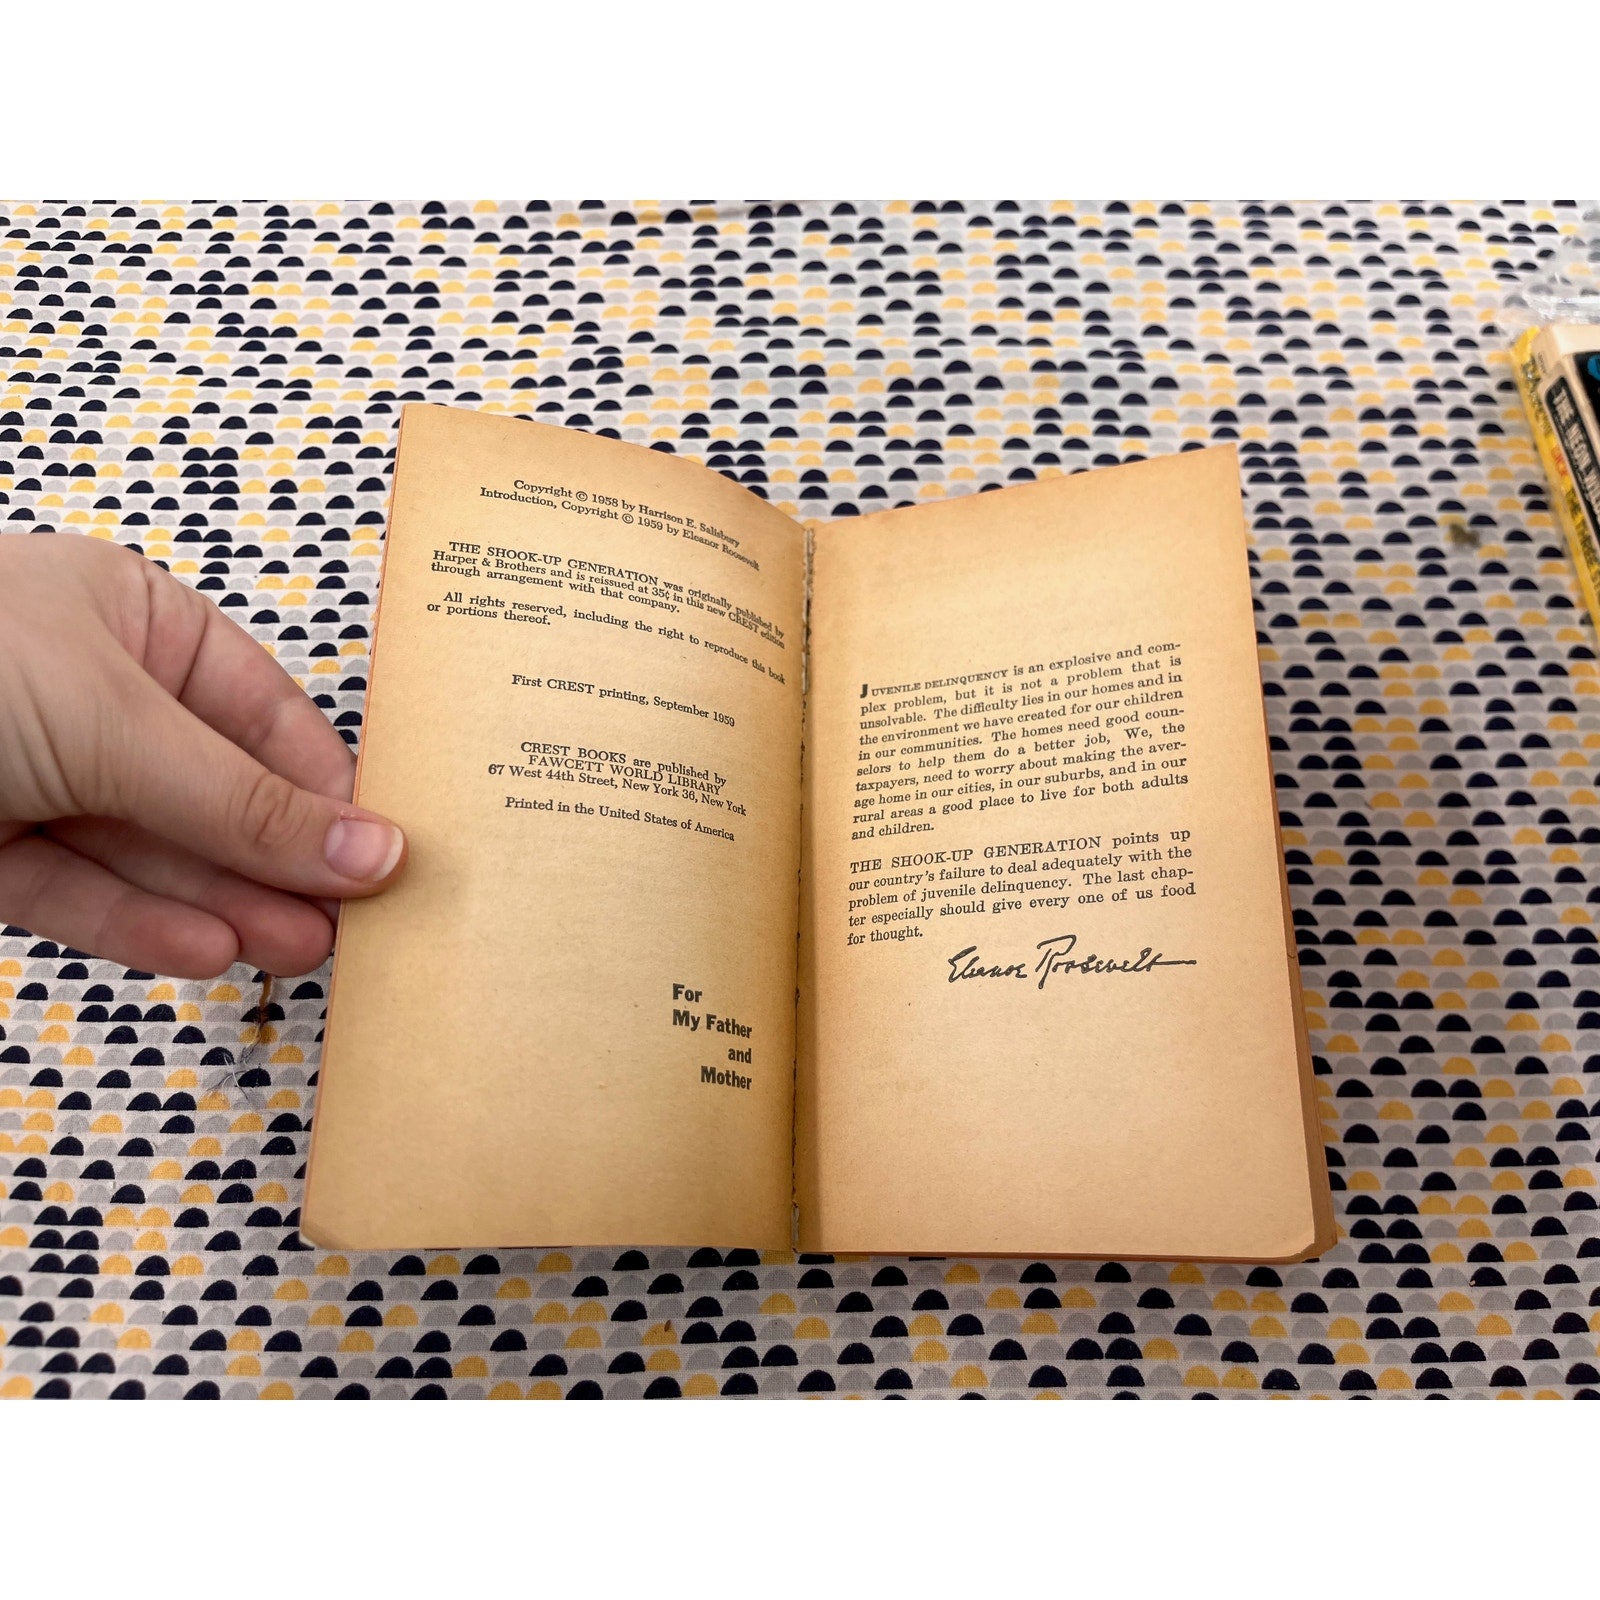 Copyright © 1958 by Harrison E. Salisbury
Introduction, Copyright © 1959 by Eleanor Roosevelt
THE SHOOK-UP GENERATION was originally published by
Harper & Brothers and is reissued at 35¢ in this new CREST edition
through arrangement with that company.
All rights reserved, including the right to reproduce this book
or portions thereof.
First CREST printing, September 1959
CREST BOOKS are published by
FAWCETT WORLD LIBRARY
67 West 44th Street, New York 36, New York
Printed in the United States of America
For
My Father
and
Mother
JUVENILE DELINQUENCY is an explosive and com-
plex problem, but it is not a problem that is
unsolvable. The difficulty lies in our homes and in
the environment we have created for our children
in our communities. The homes need good coun-
selors to help them do a better job, We, the
taxpayers, need to worry about making the aver-
age home in our cities, in our suburbs, and in our
rural areas a good place to live for both adults
and children.
THE SHOOK-UP GENERATION points up
our country's failure to deal adequately with the
problem of juvenile delinquency. The last chap-
ter especially should give every one of us food
for thought.
Eleanor Roosevelt
THE